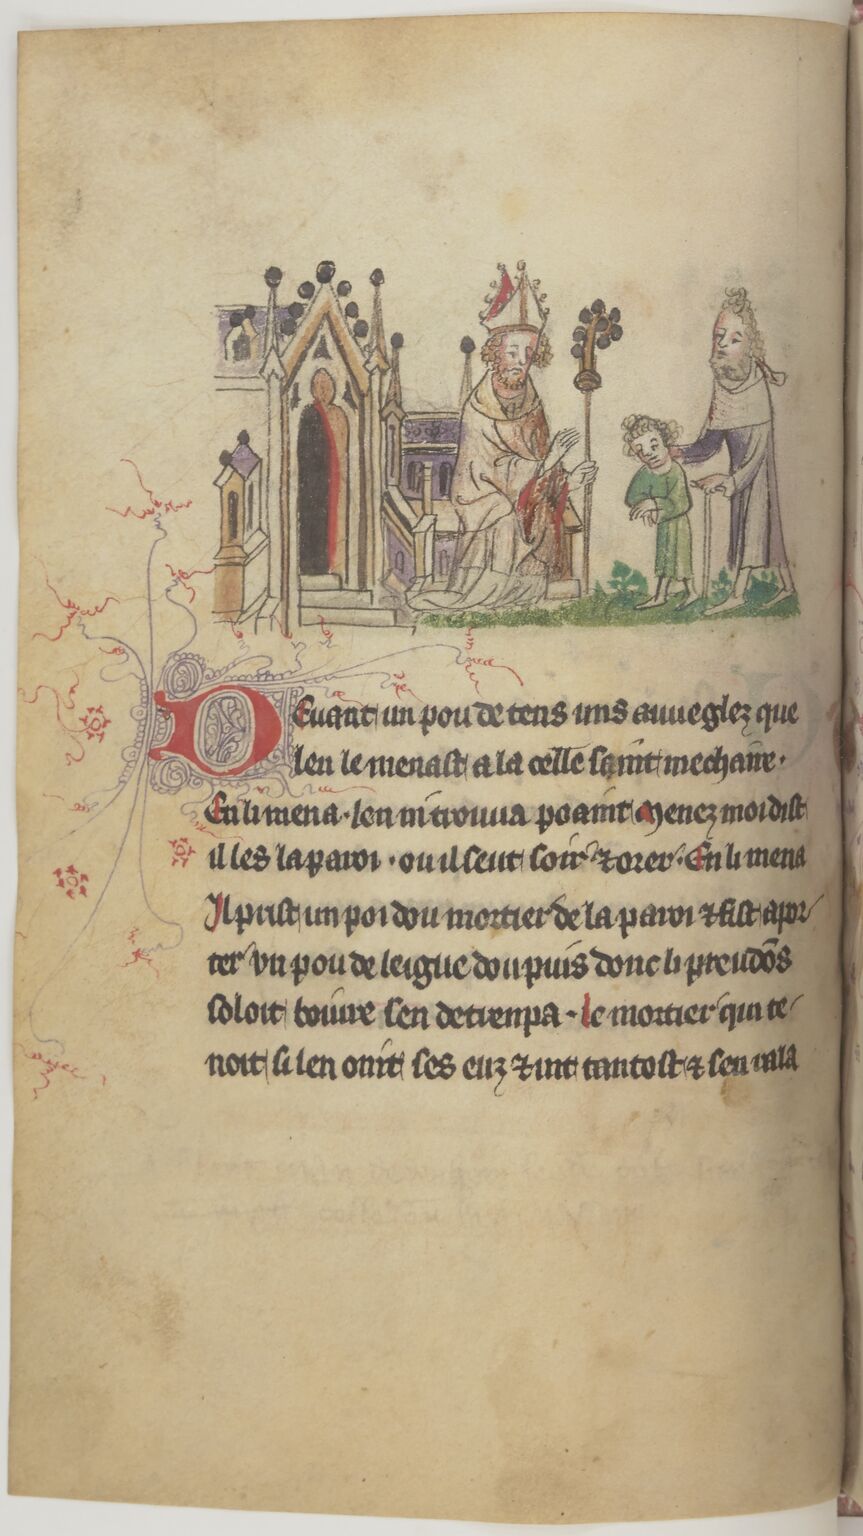 Deuant un pou de tens uns auueglez que
len le menast a la celle saint mechaire ·
En li mena · len ni trouua poaint Menez moi dist
il les la paroi · ou il seut soir ⁊ orer · En li mena
Il prist un poi dou mortier de la paroi ⁊ fist apor
ter vn pou de leigue dou puis donc li preudõs
soloit boiure sen detrenpa · le mortier qui te
noit si len oint ses euz ⁊ int tantost ⁊ sen rala